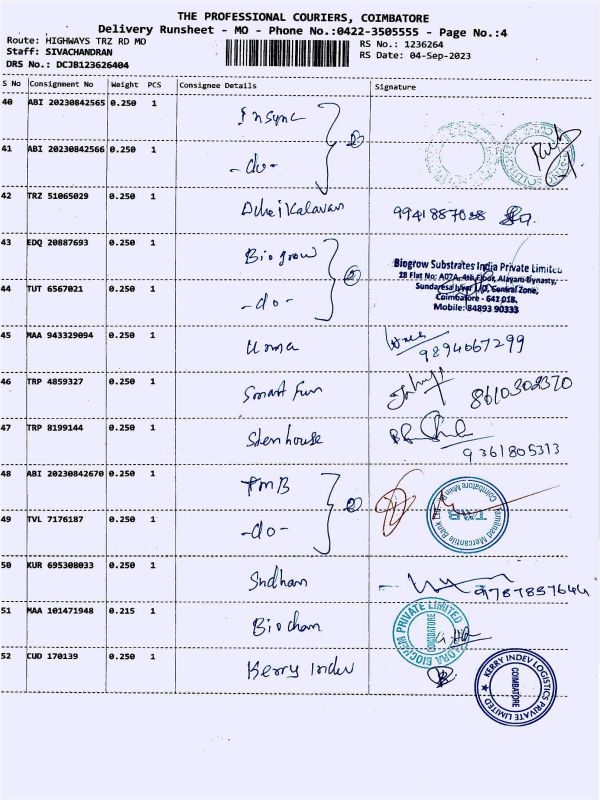 THE PROFESSIONAL COURIERS, COIMBATORE
Delivery Runsheet - MO - Phone No.:0422-3505555 - Page No.:4
Route: HIGHWAYS TRZ RD MO
RS No.: 1236264
Staff: SIVACHANDRAN
RS Date: 04-Sep-2023
DRS No.: DCJB123626404
S No Consignment No Weight PCS Consignee Details Signature
40 ABI 20230842565 0.250 1 Insync
41 ABI 20230842566 0.250 1 -do-
42 TRZ 51065029 0.250 1
43 EDQ 20887693 0.250 1 Biogrow
Biogrow Substrates India Private Limited
18 Flat No; A07A, 4th Floor, Alayam Dynasty,
44 TUT 6567021 0.250 1 -do-
Central Zone,
Coimbatore - 641 018.
Mobile: 84893 90333
45 MAA 943329094 0.250 1 Uma 9894067299
46 TRP 4859327 0.250 1 Smart Fun
47 TRP 8199144 0.250 1 Stenhouse 9361805313
48 ABI 20230842670 0.250 1 TMB
Tamilnad Mercantile Bank
TMB
49 TVL 7176187 0.250 1 -do-
50 KUR 695308033 0.250 1
51 MAA 101471948 0.215 1 Biochem
BIOCHEM PRIVATE LIMITED
COIMBATORE
52 CUD 170139 0.250 1 Kerry Indev
KERRY INDEV LOGISTICS PRIVATE LIMITED
COIMBATORE